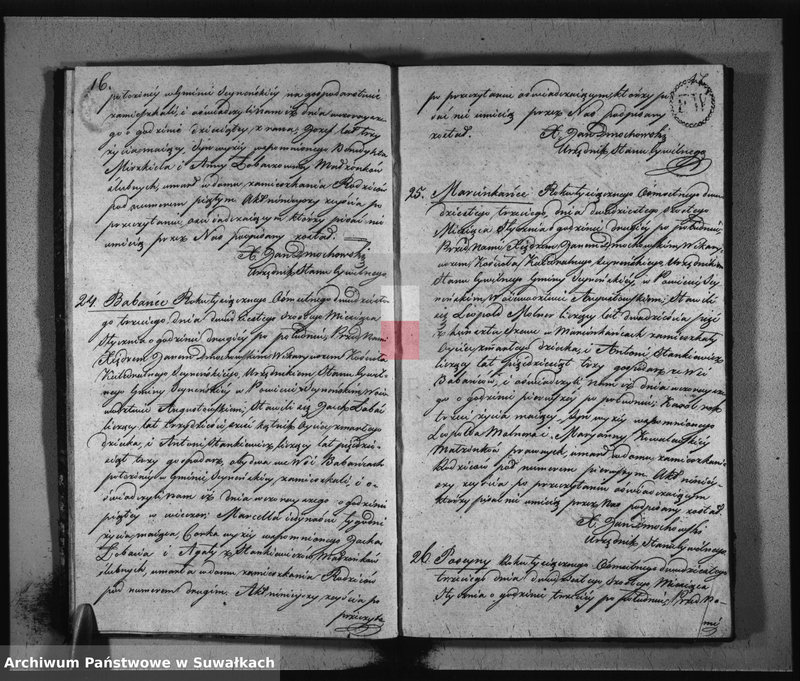 16.
położonéy w Gminie Seynenskiéy na gospodarstwie
zamieszkali, i oświadczyli nam iż dnia wczorayszego
o godzinie dziesiątéy z rana, Jozef lat trzy
życia maiący, Syn wyżéy wspomnionego Benedykta
i Anny Małżonków
ślubnych, umarł w domu zamieszkania Rodziców
pod numerem piątym. Akt ninieyszy zeyścia po
przeczytaniu oświadczaiącym, którzy pisać nie
umieią przez Nas podpisany został.
X. Jan Dmochowski
Urzędnik Stanu Cywilnego
24. Babańce Roku tysiącznego Ośmsetnego dwudziestego
trzeciego, dnia dwudziestego Szostego Miesiąca
Stycznia o godzinie drugiéy po południu, Przed Nami
Xiędzem Janem Dmochowskim Wikaryuszem Kościoła
Katedralnego Seynenskiego, Urzędnikiem Stanu Cywilnego
Gminy Seynenskiéy w Powiecie Seynenskim, Woiewództwie
Augustowskim, Stawili się Jacko
liczący lat trzydzieści sześć kątnik Oyciec zmarłego
dziecka, i Antoni Stankiewicz, liczący lat pięćdziesiąt
trzy gospodarz, obydwa we Wsi Babańcach
położonéy w Gminie Seynenskiéy zamieszkali, i
oświadczyli Nam iż dnia wczorayszego o godzinie
piątéy w wieczór Marcella iedynaście tygodni
życia maiąca, Corka wyżéy wspomnionego Jacka
i Agaty z Stankiewiczów Małżonków
ślubnych, umarła w domu zamieszkania Rodziców
pod numerem drugim. Akt ninieyszy zeyścia po
przeczyta
po przeczytaniu oświadczaiącym, którzy pisać
nie umieią przez Nas podpisany
został.
X. Jan Dmochowski
Urzędnik Stanu Cywilnego
25. Marcinkańce Roku tysiącznego Ośmsetnego dwudziestego
trzeciego, dnia dwudziestego Szostego
Miesiąca Stycznia o godzinie drugiéy po południu,
Przed Nami Xiędzem Janem Dmochowskim Wikaryuszem
Kościoła Katedralnego Seynenskiego Urzędnikiem
Stanu Cywilnego Gminy Seynenskiéy, w Powiecie Seynenskim
Woiewództwie Augustowskim, Stawili
się Leopold liczący lat dwadzieścia pięć
kunszta Szewc w Marcinkańcach zamieszkały
Oyciec zmarłego dziecka, i Antoni Stankiewicz
liczący lat pięćdziesiąt trzy gospodarz we Wsi
Babańcach, i oświadczyli Nam iż dnia wczorayszego
o godzinie pierwszéy po południu, Karól rok
trzeci życia maiący, syn wyżéy wspomnionego
Leopolda i Maryanny
Małżonków prawnych, umarł w domu zamieszkania
Rodziców pod numerem pierwszym. Akt ninieyszy
zeyścia po przeczytaniu oświadczaiącym
którzy pisać nie umieią przez Nas podpisany został.
X. Jan Dmochowski
Urzędnik Stanu Cywilnego
26. Poseyny Roku tysiącznego Ośmsetnego dwudziestego
trzeciego dnia dwudziestego Szostego Miesiąca
Stycznia o godzinie trzeciéy po południu, Przed Na-
mi
Archiwum Państwowe w Suwałkach